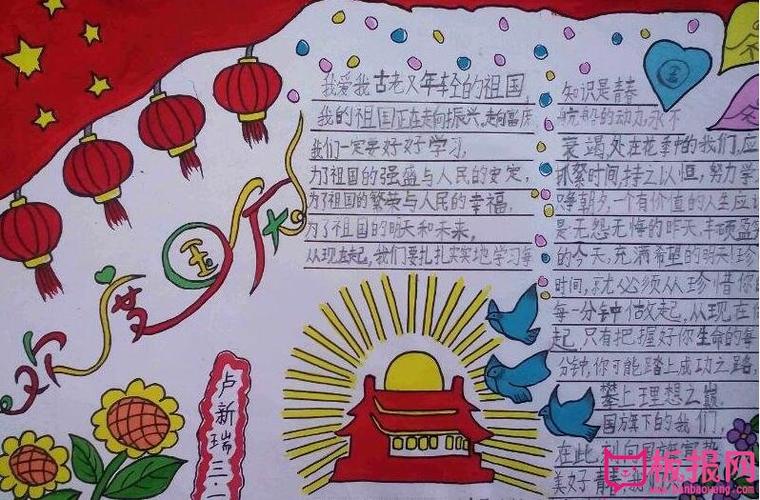 欢度国庆
卢新瑞 三.一
我爱我古老又年轻的祖国,
我的祖国正在走向振兴,走向富庶
我们一定要好好学习,
为了祖国的强盛与人民的安定,
为了祖国的繁荣与人民的幸福,
为了祖国的明天和未来,
从现在起,我们要扎扎实实地学习每
知识是青春
的动力,永不
衰竭,处在花季中的我们,应
抓紧时间,持之以恒,努力学
一个有价值的人生应
是无怨无悔的昨天,丰硕盈
的今天,充满希望的明天!珍
时间,就必须从珍惜你
每一分钟做起,从现在
起,只有把握好你生命的每
分钟,你可能踏上成功之路,
攀上理想之巅.
国旗下的我们,
在此,到向国旗宣
美好青春
国
板报网
www.banbaowang.com